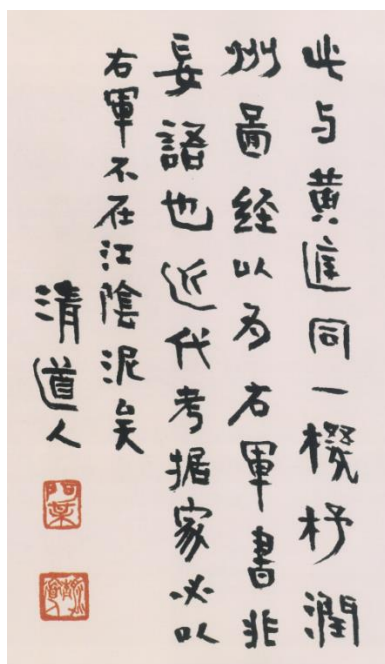 此与黄庭同一機杼潤
州啚経以为右軍書非
妄語也近代考据家必以
右軍不在江陰泥矣
清道人